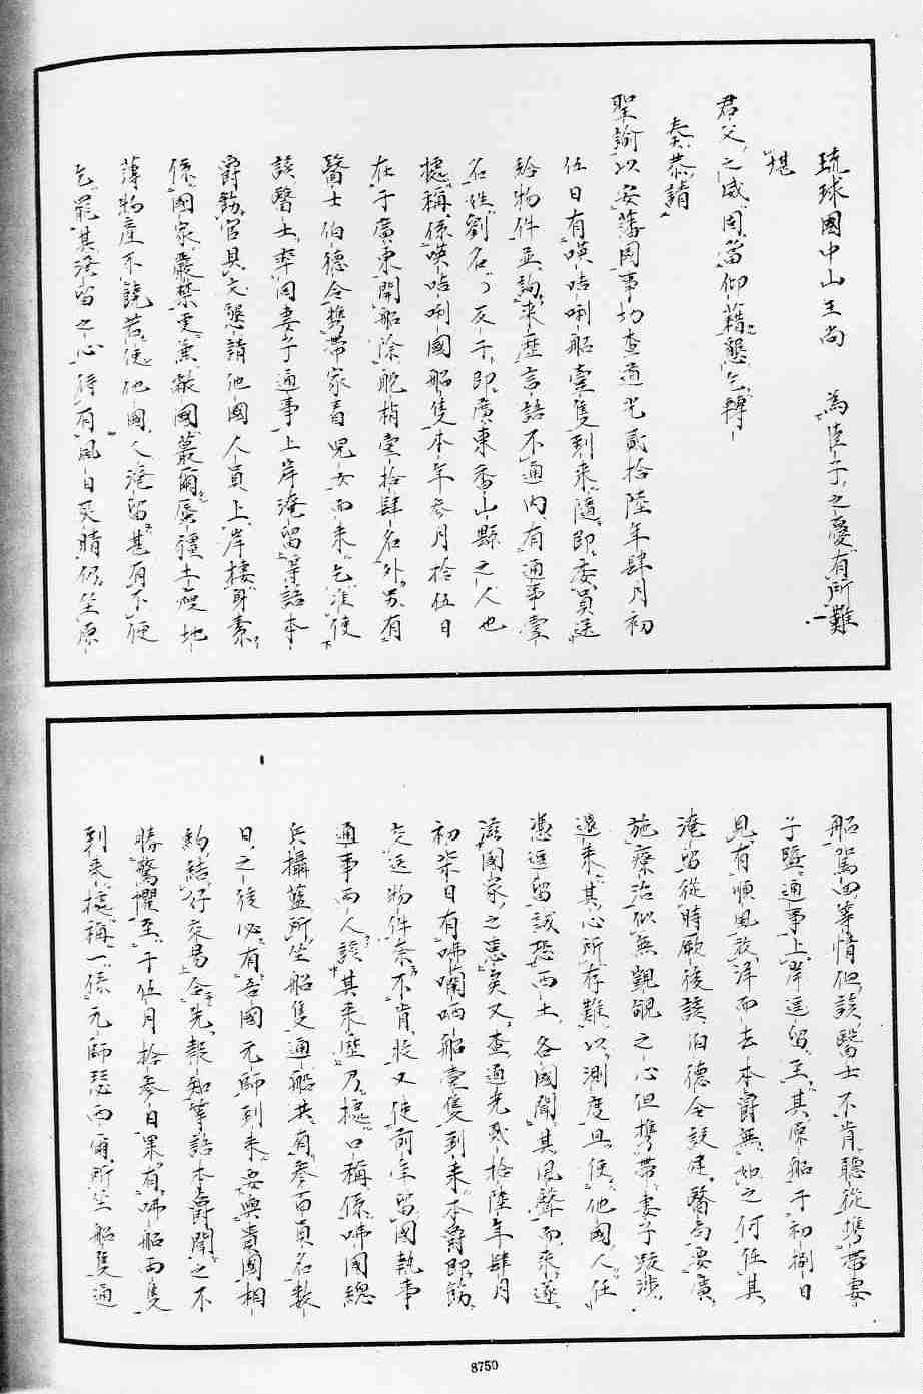 琉球國中山王尚　為臣子之憂有所難
堪
君父之威周當仰藉懇乞轉
奏恭請
聖諭以安藩國事切查道光貳拾陸年肆月初
伍日有嘆咭唎船壹隻到來隨即委員送
給物件並詢來歷言語不通內有通事壹
名姓劉名友干即廣東香山縣之人也
據稱係嘆咭唎國船隻本年叁月拾伍日
在于廣東開船除舵梢壹拾肆名外另有
醫士伯德令攜帶家眷兒女而來乞准使
該醫士率同妻子通事上岸淹留等語本
爵飭官具文懇請他國人員上岸棲身素
係國家嚴禁更兼敝國蕞爾蜃疆土瘦地
薄物產不饒若使他國人淹留甚有不便
乞罷其淹留之心待有風日天晴仍坐原
船駕回等情但該醫士不肯聽從攜帶妻
子暨通事上岸逗留至其原船于初捌日
見有順風放洋而去本爵無如之何任其
淹留從時厥後該伯德令設建醫局要廣
施療治似無覬覦之心但攜帶妻子跋涉
遠來其心所存難以測度且使他國人任
憑逗留誠恐西土各國聞其風聲而來遂
滋國家之患矣又查道光貳拾陸年肆月
初柒日有咈囒哂船壹隻到來本爵即飭
交送物件奈不肯收又使前年留國執事
通事兩人談其來歷乃據口稱係咈國總
兵攝藍所坐船隻通船共有叁百員名數
日之後必有吾國元帥到來要與貴國相
約結好交易合先報知等語本爵聞之不
勝驚懼至于伍月拾參日果有咈船兩隻
到來據稱一係元帥瑟西爾所坐船隻通
8750